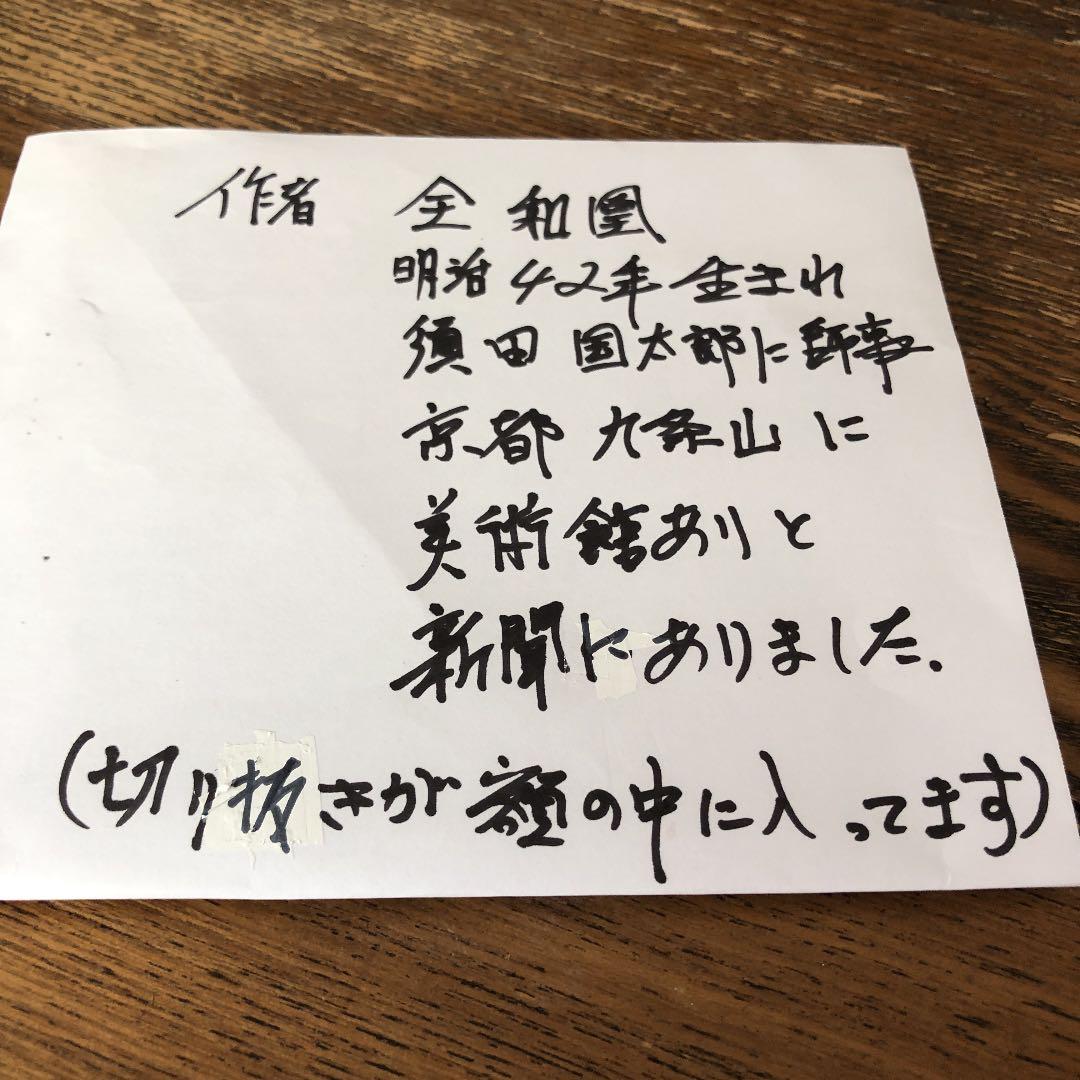 作者 全和凰
明治42年生まれ
須田国太郎に師事
京都九条山に
美術館ありと
新聞にありました.
(切り抜きが額の中に入ってます)